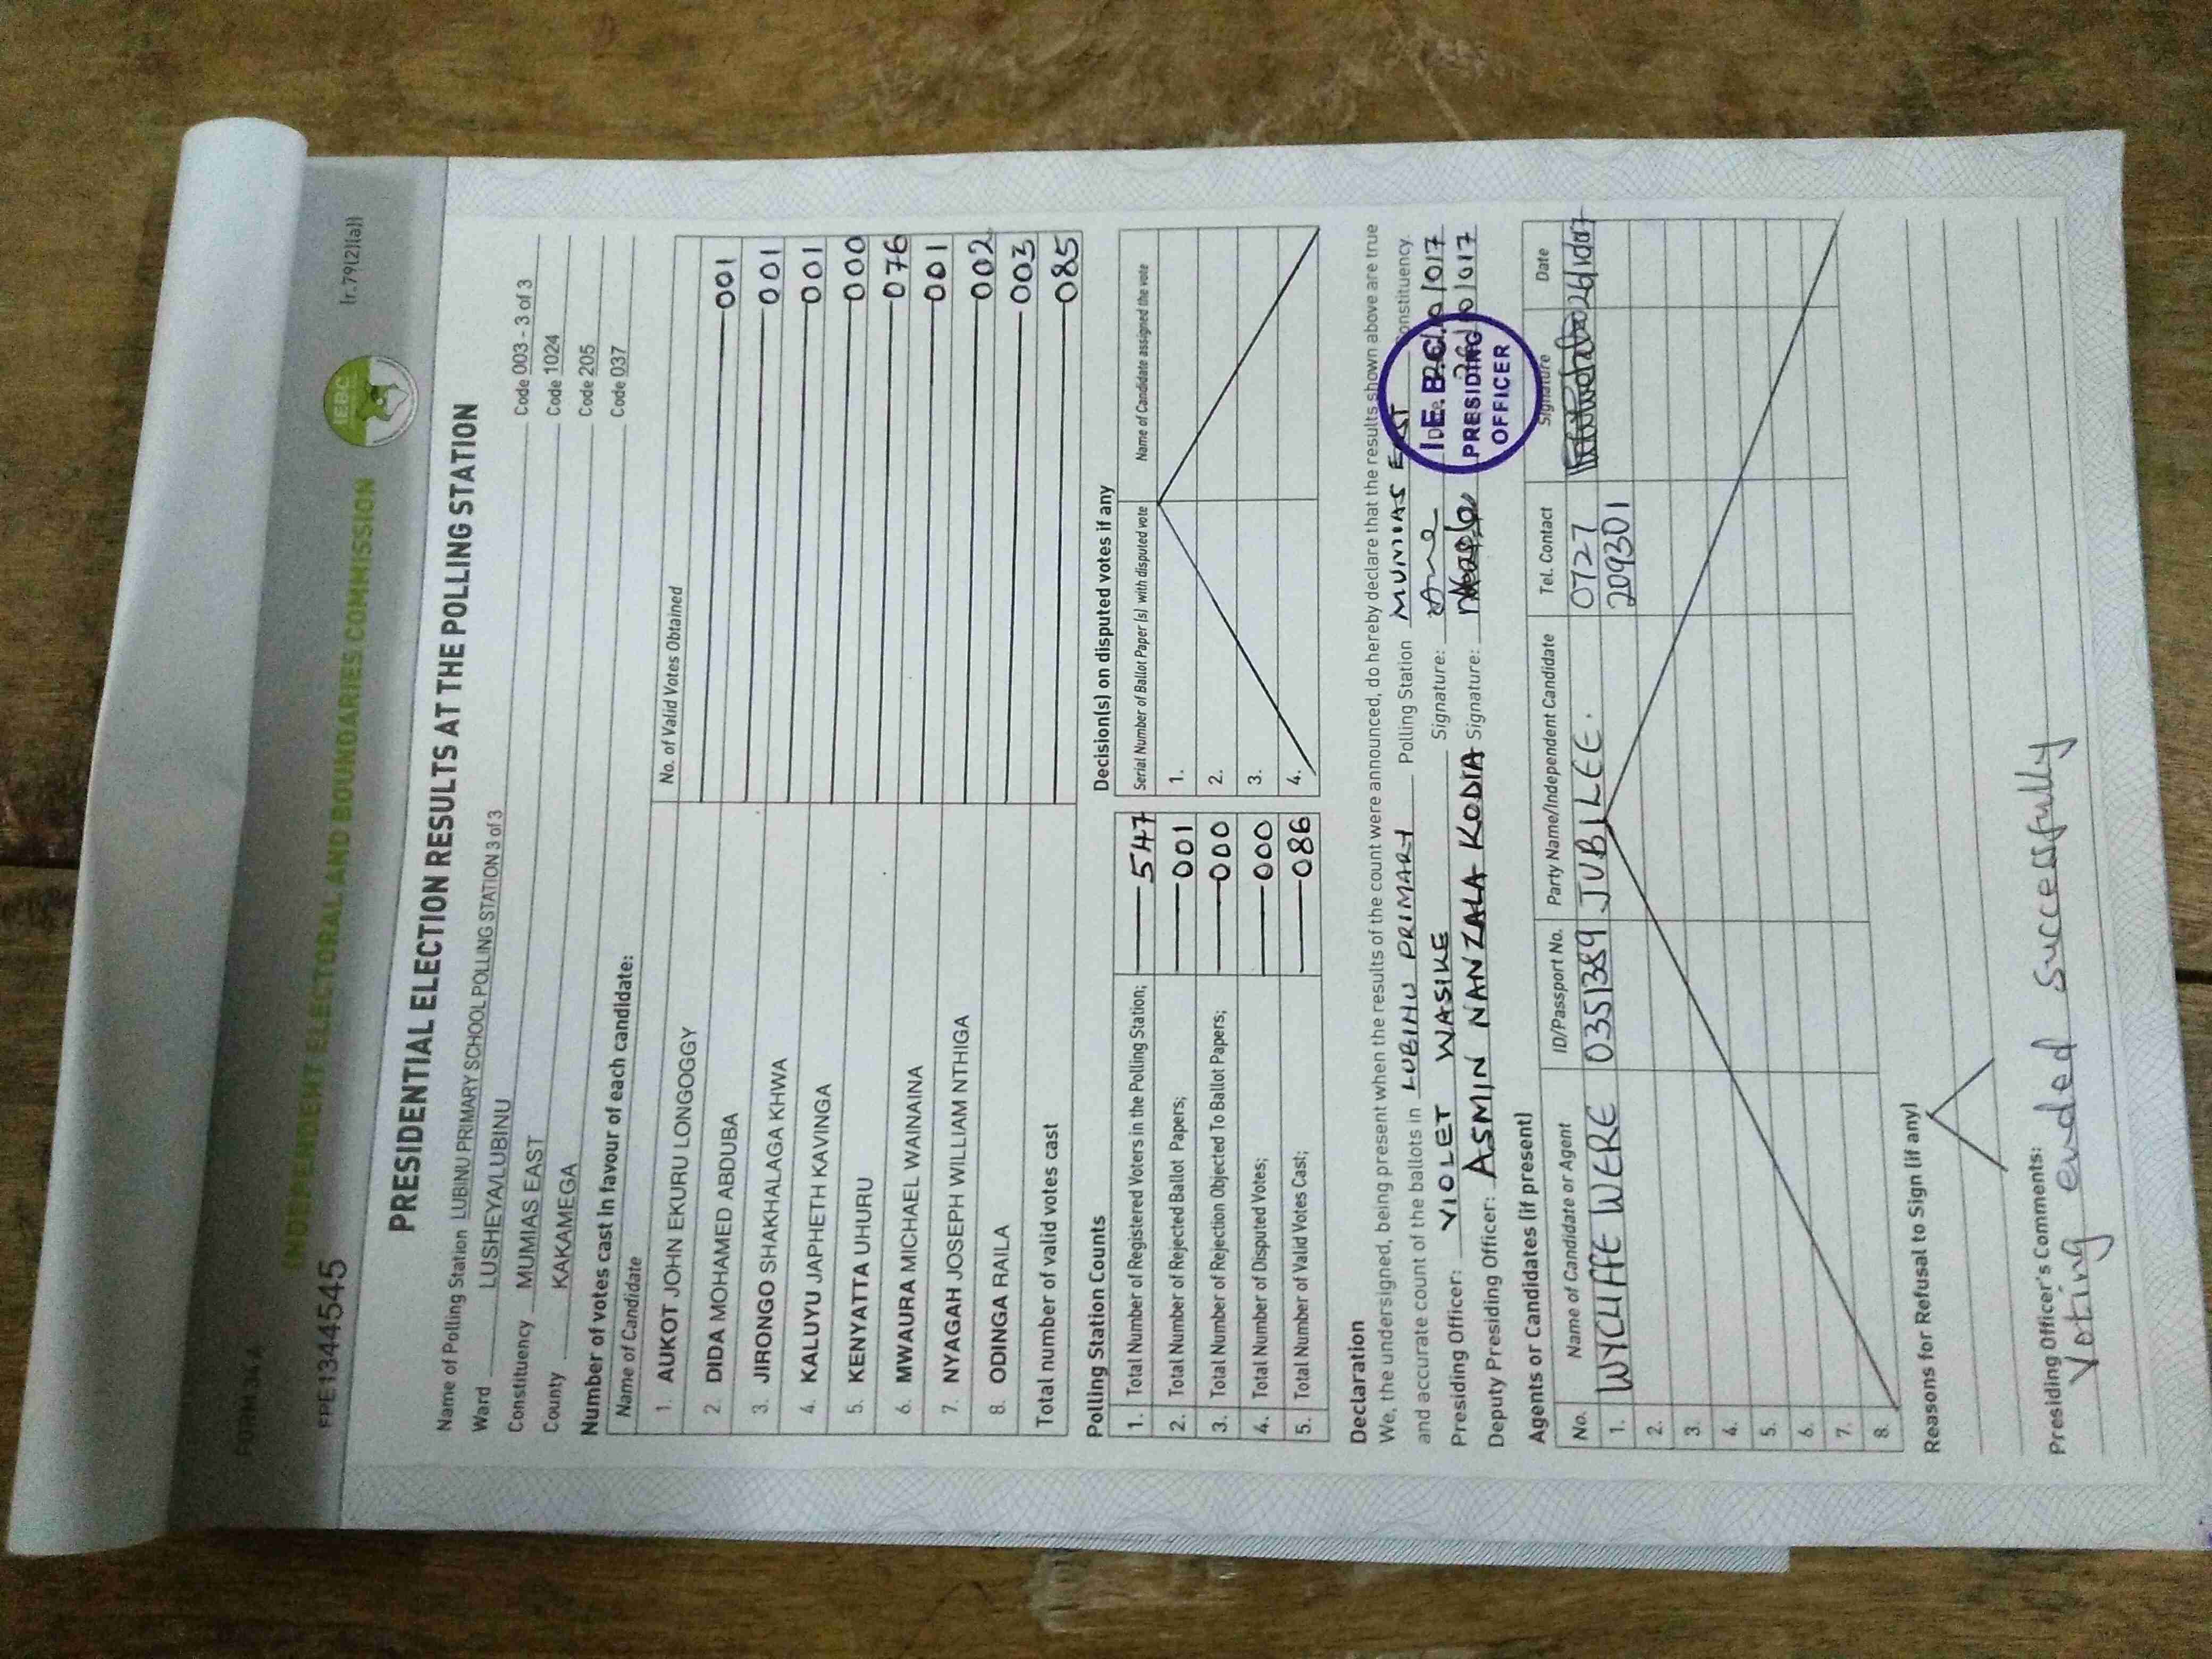 FORM 34 A
(r.79(2)(a))
INDEPENDENT ELECTORAL AND BOUNDARIES COMMISSION
IEBC
EPE1344545
PRESIDENTIAL ELECTION RESULTS AT THE POLLING STATION
Name of Polling Station LUBINU PRIMARY SCHOOL POLLING STATION 3 of 3 Code 003 - 3 of 3
Ward LUSHEYA/LUBINU Code 1024
Constituency MUMIAS EAST Code 205
County KAKAMEGA Code 037
Number of votes cast in favour of each candidate:
Name of Candidate No. of Valid Votes Obtained
1. AUKOT JOHN EKURU LONGOGGY 001
2. DIDA MOHAMED ABDUBA 001
3. JIRONGO SHAKHALAGA KHWA 001
4. KALUYU JAPHETH KAVINGA 000
5. KENYATTA UHURU 076
6. MWAURA MICHAEL WAINAINA 001
7. NYAGAH JOSEPH WILLIAM NTHIGA 002
8. ODINGA RAILA 003
Total number of valid votes cast 085
Polling Station Counts
1. Total Number of Registered Voters in the Polling Station; 547
2. Total Number of Rejected Ballot Papers; 001
3. Total Number of Rejection Objected To Ballot Papers; 000
4. Total Number of Disputed Votes; 000
5. Total Number of Valid Votes Cast; 086
Decision(s) on disputed votes if any
Serial Number of Ballot Paper (s) with disputed vote Name of Candidate assigned the vote
1.
2.
3.
4.
Declaration
We, the undersigned, being present when the results of the count were announced, do hereby declare that the results shown above are true
and accurate count of the ballots in LUBINU PRIMARY Polling Station MUMIAS EAST Constituency.
Presiding Officer: VIOLET WASIKE Signature:
Deputy Presiding Officer: ASMIN NANZALA KODIA Signature:
I.E.B.C.
PRESIDING
OFFICER
Agents or Candidates (if present)
No. Name of Candidate or Agent ID/Passport No. Party Name/Independent Candidate Tel. Contact Signature Date
1. WYCLIFFE WERE 0351389 JUBILEE. 0727
209301
2.
3.
4.
5.
6.
7.
8.
Reasons for Refusal to Sign (if any)
Presiding Officer's Comments:
Voting ended successfully